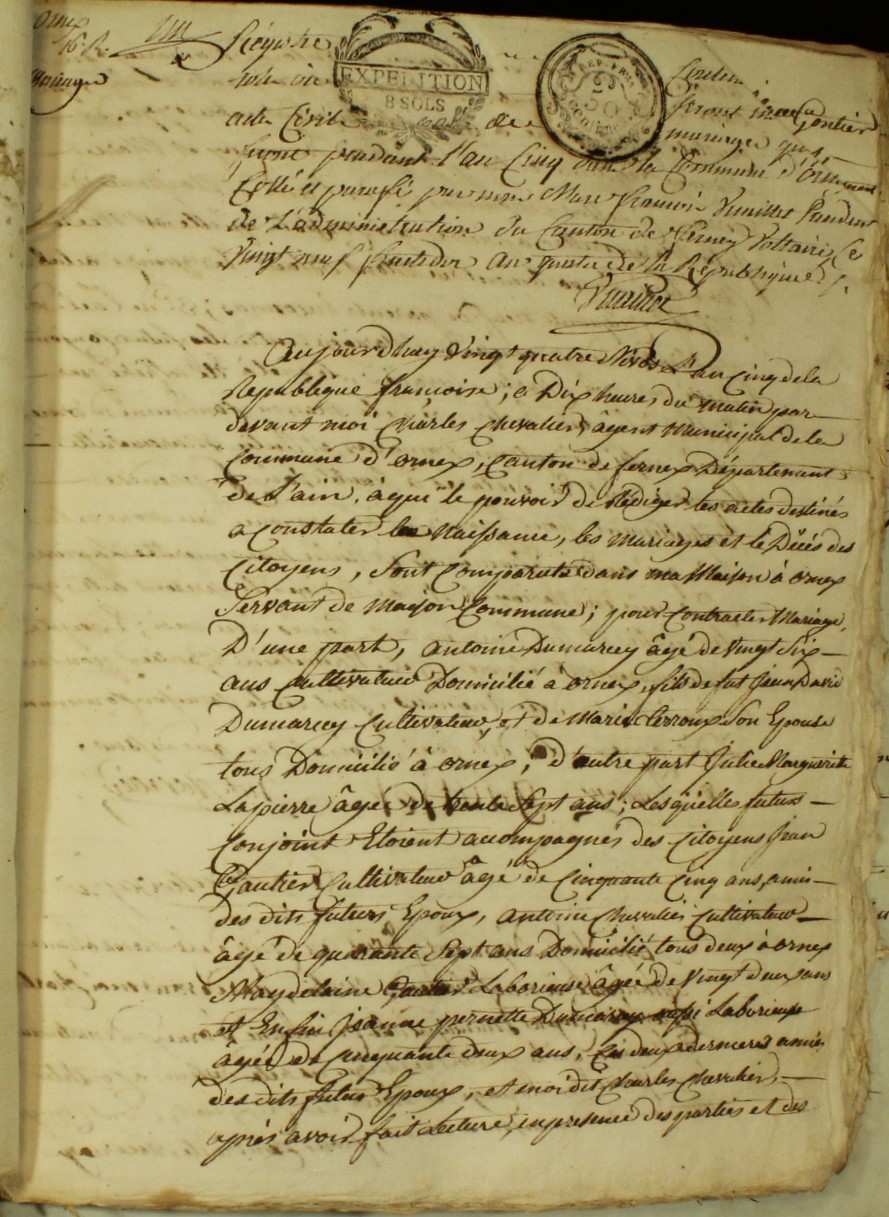 Ornex
Mariage
Régistre
EXPEDITION
8 SOLS
acte Civile de mariage qui
seront pendant l'an Cinq dans la Commune d'Ornex
Cotté et paraphé par nous Marc François président
de l'administration du Canton de Ferney Voltaire le
Vingt neuf fructidor an quatre de la République
aujourdhuy Vingt quatre Nivos L'an Cinq de la
Republique francoise ; a Dix heures du matin par
devant moi Charles Chevalier, âgent Municipal de la
Commune d'ornex, Canton de fernex Département
de l'ain, à qui le pouvoir de Rédiger les actes destinés
a Constater les Naissance, les Mariages et le Décés des
Citoyens, Sont Comparuts dans ma Maison à ornex
Servant de Maison Commune ; pour Contracter Mariage,
D'une part, antoine Dumarcey âgé de Vingt Six
ans Cultivateur Domicilié à ornex, fils de fut Jean David
Dumarcey Cultivateur, et de Marie Perroux Son Epouse
tous Domicilié à ornex, d'autre part Julie Marguerite
Lapierre âgée de trente Sept ans ; Lesquelles futurs
Conjoint Etoient accompagnés des Citoyens Jean
Gautier Cultivateur âgé de Cinquante Cinq ans, amis
des dits futurs Epoux, antoine Chevalier Cultivateur
âgé de quarante Sept ans Domicilié tous deux à ornex
Magdelaine Laborieuse âgée de Vingt deux ans
et Enfin Jeanne pernette Dumarcey aussi Laborieuse
agée de Cinquante deux ans, Ces deux dernieres amies
des dits futur Epoux, et moi dit Charles Chevalier,
après avoir fait Lecture, en presence des parties et des